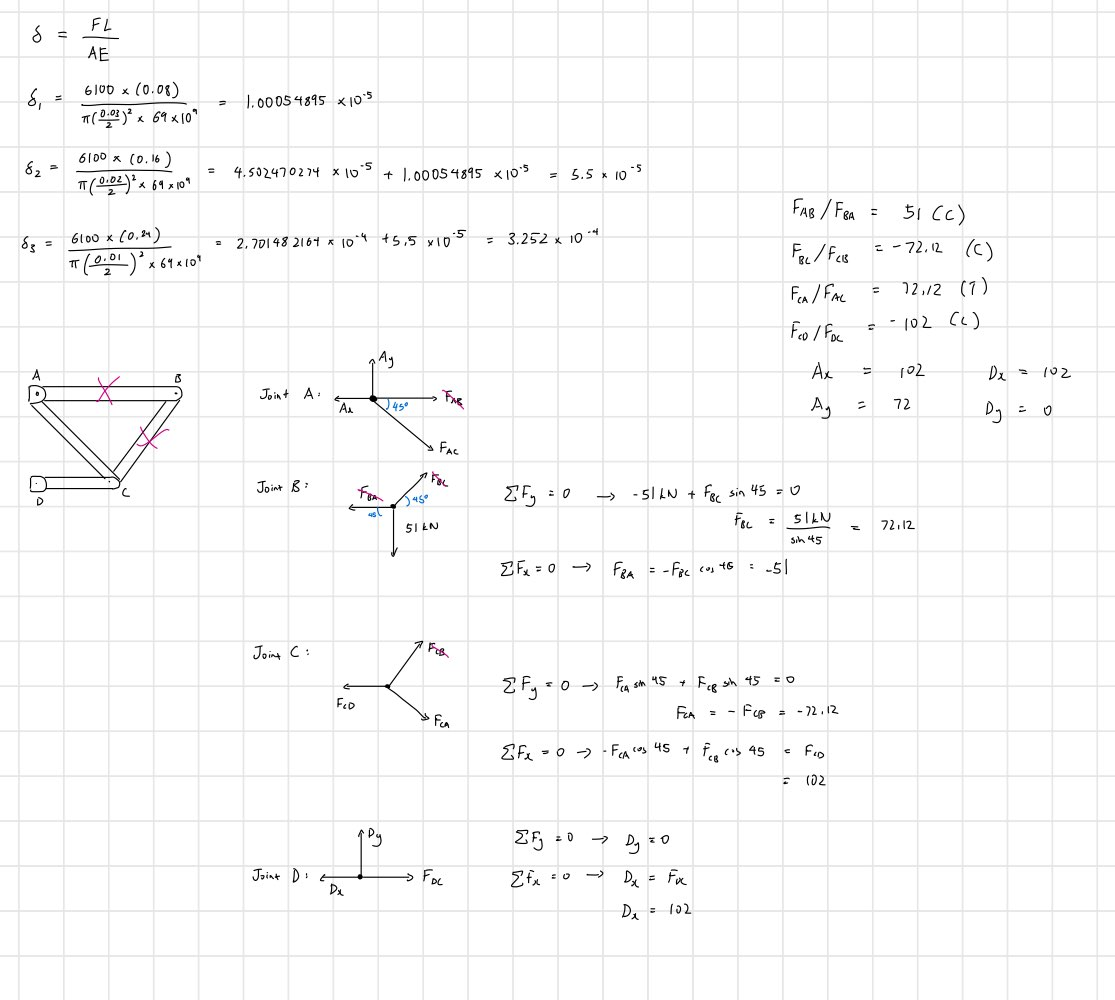 δ = FL / AE
δ₁ = 6100 × (0.08) / π(0.03/2)² × 69×10⁹ = 1.00054895 ×10⁻⁵
δ₂ = 6100 × (0.16) / π(0.02/2)² × 69×10⁹ = 4.502470274 × 10⁻⁵ + 1.00054895 ×10⁻⁵ = 5.5 × 10⁻⁵
δ₃ = 6100 × (0.24) / π(0.01/2)² × 69×10⁹ = 2.701482164 × 10⁻⁴ + 5.5 ×10⁻⁵ = 3.252 × 10⁻⁴
F_AB / F_BA = 51 (C)
F_BC / F_CB = -72.12 (C)
F_CA / F_AC = 72.12 (T)
F_CD / F_DC = -102 (C)
Ax = 102 Dx = 102
Ay = 72 Dy = 0
A B
D C
Joint A: Ay Ax 45° F_AB F_AC
Joint B: F_BA F_BC 45° 45 51 kN
ΣFy = 0 → -51kN + F_BC sin 45 = 0
F_BC = 51kN / sin 45 = 72.12
ΣFx = 0 → F_BA = -F_BC cos 45 = -51
Joint C: F_CB F_CD F_CA
ΣFy = 0 → F_CA sin 45 + F_CB sin 45 = 0
F_CA = - F_CB = -72.12
ΣFx = 0 → -F_CA cos 45 + F_CB cos 45 = F_CD
= 102
Joint D: Dy Dx F_DC
ΣFy = 0 → Dy = 0
ΣFx = 0 → Dx = F_DC
Dx = 102